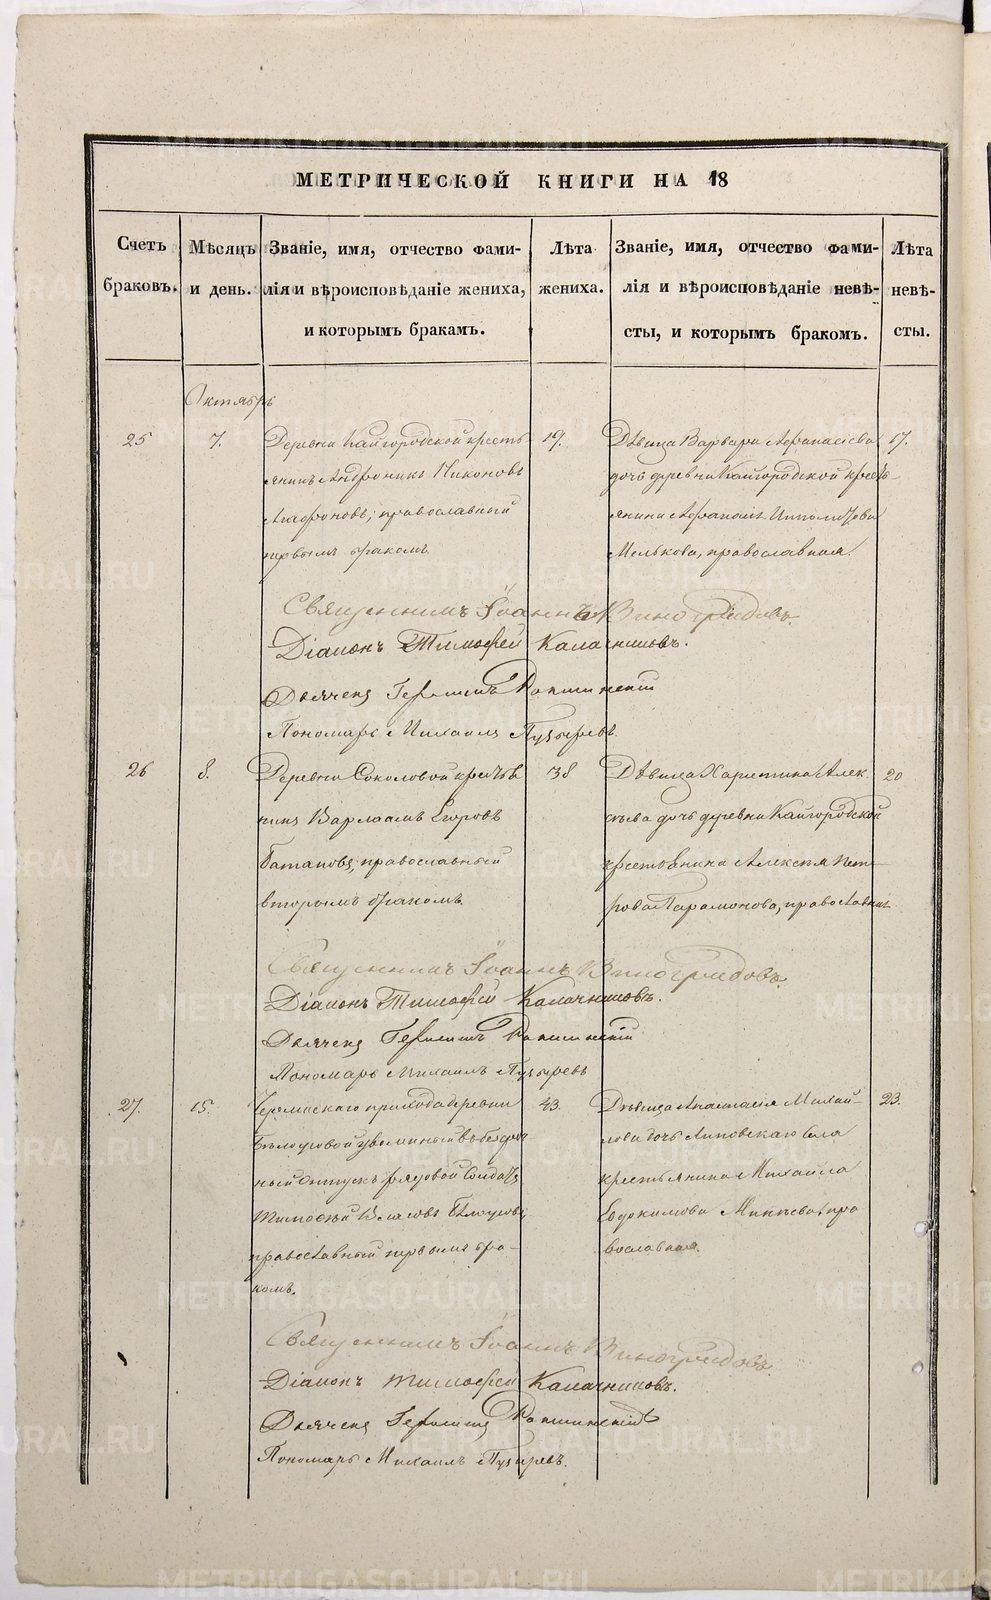 МЕТРИЧЕСКОЙ КНИГИ НА 18
Счетъ браковъ.
Мѣсяцъ и день.
Званіе, имя, отчество фами-
лія и вѣроисповѣданіе жениха,
и которымъ бракамъ.
Лѣта жениха.
Званіе, имя, отчество фами-
лія и вѣроисповѣданіе невѣ-
сты, и которымъ бракомъ.
Лѣта невѣ-
сты.
Октябрь
25
7.
Деревни Кайгородской кресть
янинъ Андроникъ Никоновъ
Агафоновъ, православный
первымъ бракомъ
19.
Дѣвица Варвара Афанасіева
дочь деревни Кайгородской кресть-
янина Афанасія Ипполитова
Мелькова, православная
17.
Священникъ Іоаннъ Виноградовъ.
Діаконъ Тимофей Калачниковъ.
Дьячекъ Герасимъ
Пономарь Михаилъ Пузыревъ
26
8.
Деревни Соколовой крестья
нинъ Варлаамъ Егоровъ
Ботаповъ, православный
вторымъ бракомъ
38
Дѣвица Харитина Алек
сѣева дочь деревни Кайгородской
крестьянина Алексѣя Пет-
рова Парамонова, православная
20
Священникъ Іоаннъ Виноградовъ.
Діаконъ Тимофей Калачниковъ.
Дьячекъ Герасимъ
Пономарь Михаилъ Пузыревъ
27.
15.
прихода деревни
Бѣлоусовой уволенный въ безсроч-
ный отпускъ рядовой солдатъ
Тимофей Власовъ Бѣлоусовъ,
православный первымъ бра-
комъ.
43.
Дѣвица Анастасія Михай-
лова дочь Липовскаго села
крестьянина Михаила
Евдокимова Микѣева, пра
вославная.
23.
Священникъ Іоаннъ Виноградовъ
Діаконъ Тимофей Калачниковъ.
Дьячекъ Герасимъ
Пономарь Михаилъ Пузыревъ.
METRIKI.GASO-URAL.RU